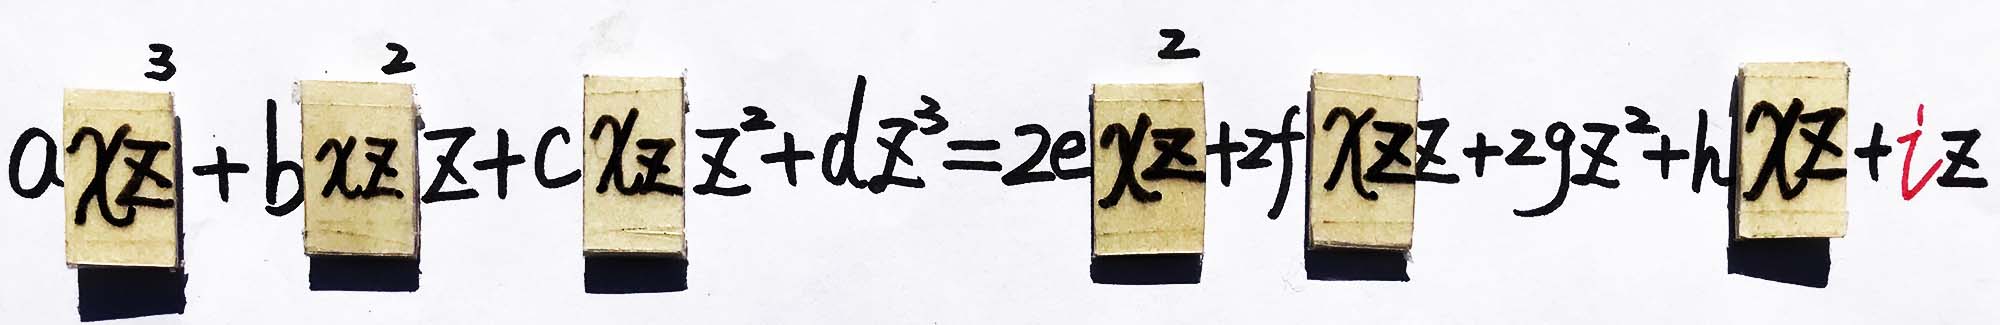 axz³+bxz²z+cxzz²+dz³=2exz²+2fxzz+2gz²+hxz+iz